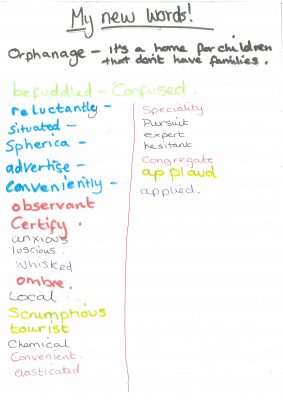 My new words!
Orphanage – it's a home for children
that don't have families.
befuddled – Confused.
reluctantly –
situated –
Spherica –
advertise –
Conveniently –
observant
Certify.
anxious
luscious.
Whisked
ombre.
Local
Scrumptious
tourist
Chemical
Convenient.
elasticated
Speciality
Pursuit
expert
hesitant
Congregate
applaud
applied.